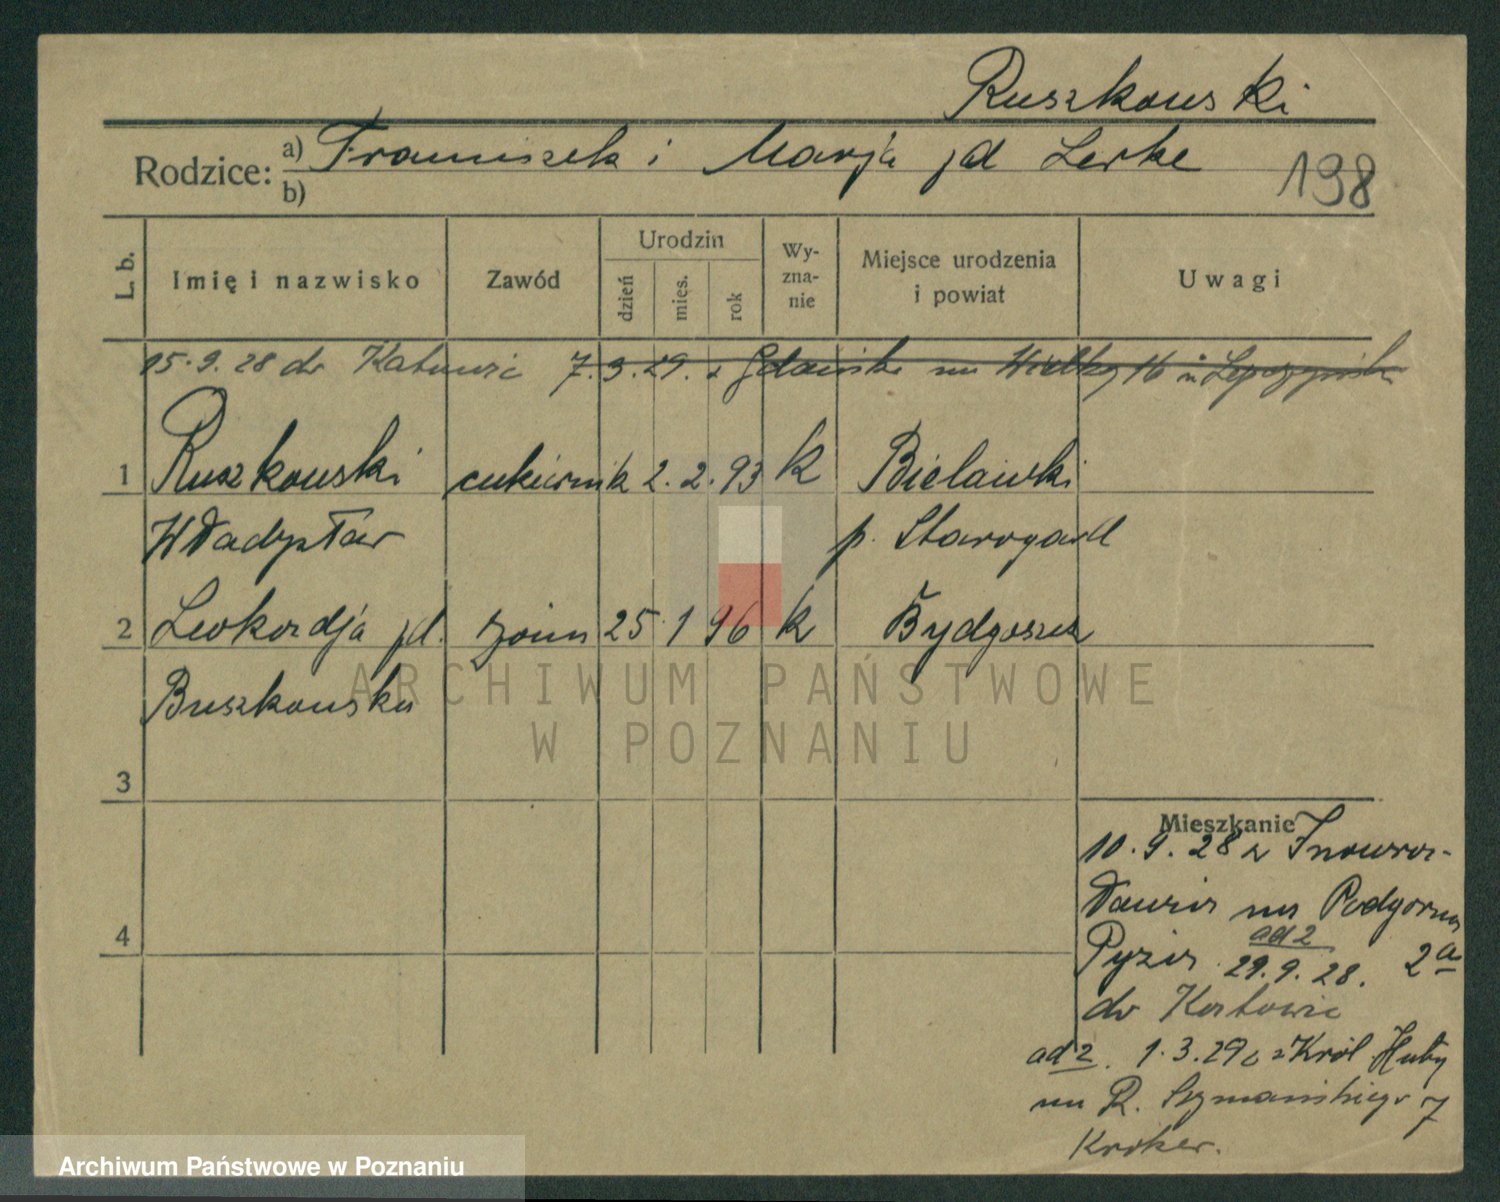 Ruszkowski
Rodzice: a) Franciszek i Marja zd Lerke
b)
198
L. b. Imię i nazwisko Zawód Urodzin dzień mies. rok Wyznanie Miejsce urodzenia i powiat Uwagi
15.9.28 do Katowic 7.3.29. z Gdańska na Wielką 16 u
1 Ruszkowski cukiernik 2. 2. 93 k Bielawki
Władysław p. Starogard
2 Leokordja zd. żona 25 1 96 k Bydgoszcz
Buszkowska
3
4
Mieszkanie
10.9.28 z Inowro-
cławia na Podgórną 2a
Pyzia ad 2 29.9.28.
do Katowic
ad 2. 1.3.29 z Król Huty
na R. Szymańskiego 7
Kroker.
ARCHIWUM PAŃSTWOWE
W POZNANIU
Archiwum Państwowe w Poznaniu